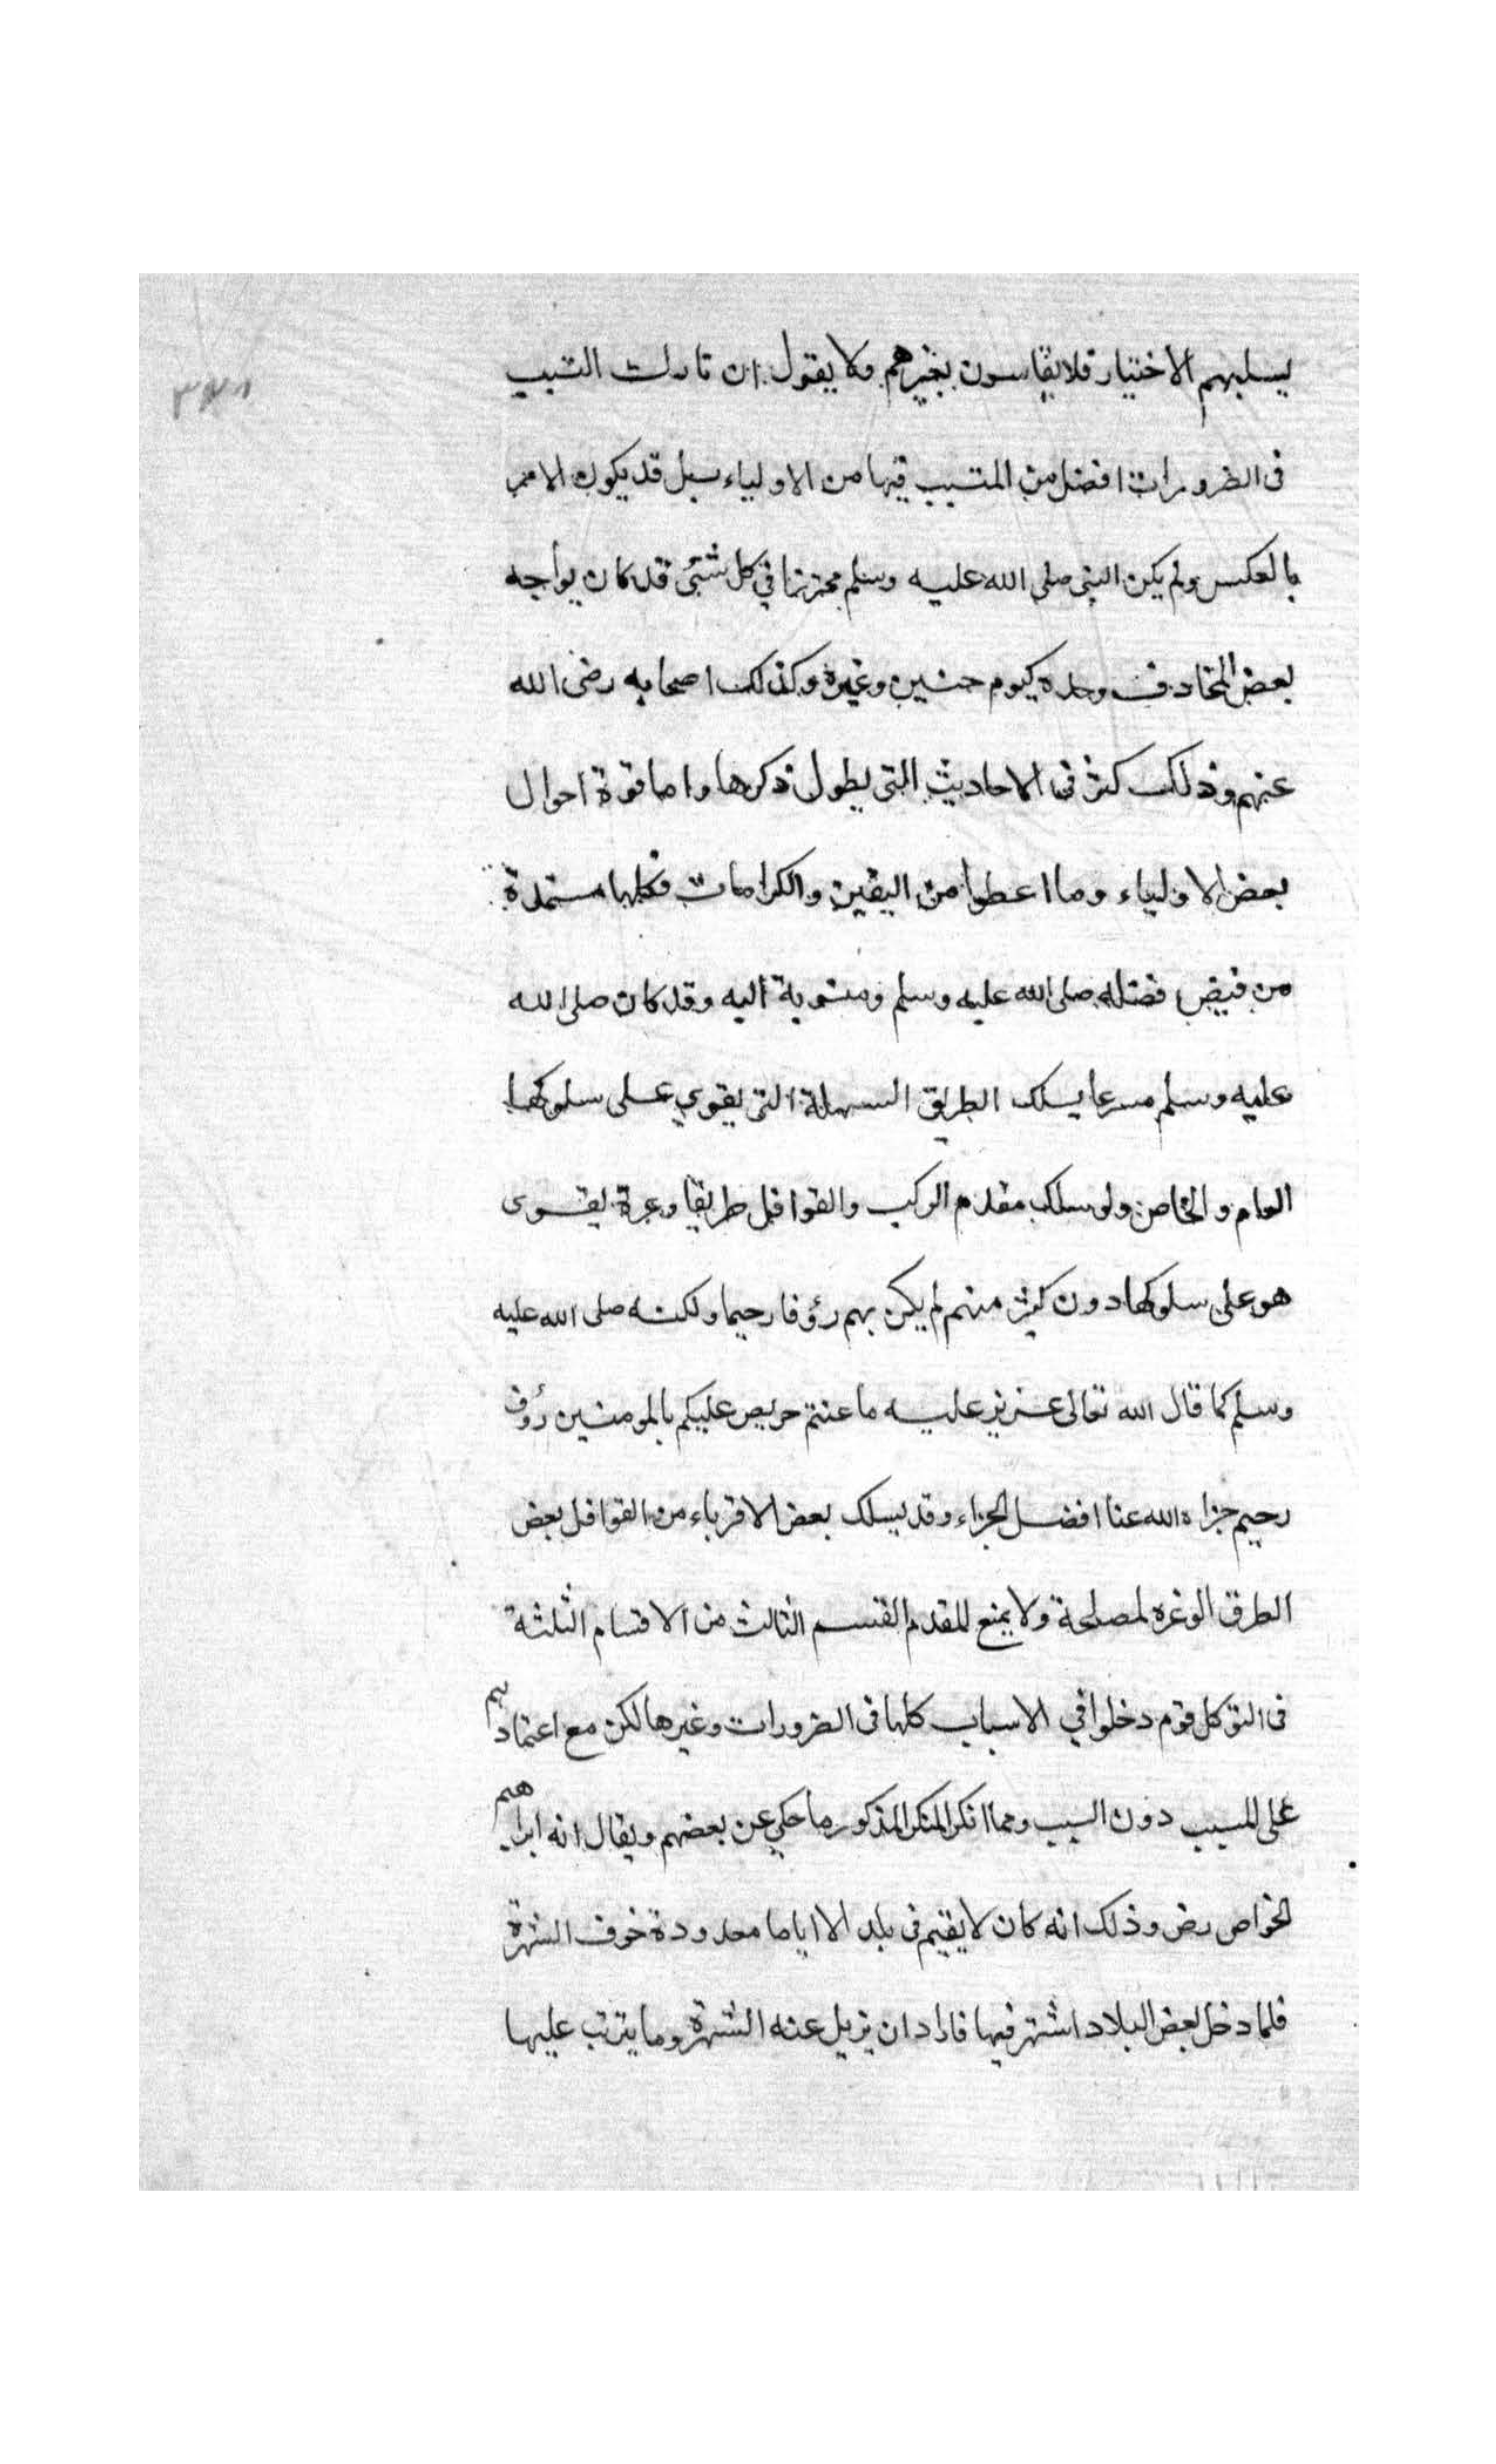 يسلبهم الاختيار فلا يقاسون بغيرهم ولا يقول ان تارك التسبب
فى الضرورات افضل من المتسبب فيها من الاولياء بل قد يكون الامر
بالعكس ولم يكن النبى صلى الله عليه وسلم محترزا في كل شئى قد كان يواجه
بعض المخاوف وحده كيوم حنين وغيره وكذلك اصحابه رضى الله
عنهم وذلك كثر فى الاحاديث التى يطول ذكرها واما قوة احوال
بعض الاولياء وما اعطوا من اليقين والكرامات فكلها مستمدة
من فيض فضله صلى الله عليه وسلم ومنسوبة اليه وقد كان صلى الله
عليه وسلم مسرعا يسلك الطريق السهلة التى يقوي على سلوكها
العام والخاص ولو سلك مقدم الركب والقوافل طريقا وعرة يقوى
هو على سلوكها دون كثير منهم لم يكن بهم رؤفا رحيما ولكنه صلى الله عليه
وسلم كما قال الله تعالى عزيز عليه ما عنتم حريص عليكم بالمومنين رؤف
رحيم جزاه الله عنا افضل الجزاء وقد يسلك بعض الاقرباء من القوافل بعض
الطرق الوغره لمصلحة ولا يمنع المقدم القسم الثالث من الاقسام الثلثة
فى التوكل قوم دخلوا في الاسباب كلها فى الضرورات وغيرها لكن مع اعتمادهم
على المسبب دون السبب ومما انكر المنكر المذكور ما حكي عن بعضهم ويقال انه ابراهيم
الخواص رض وذلك انه كان لا يقيم فى بلد الا اياما معدودة خوف الشهرة
فلما دخل بعض البلاد اشتهر فيها فاراد ان يزيل عنه الشهرة وما يترتب عليها